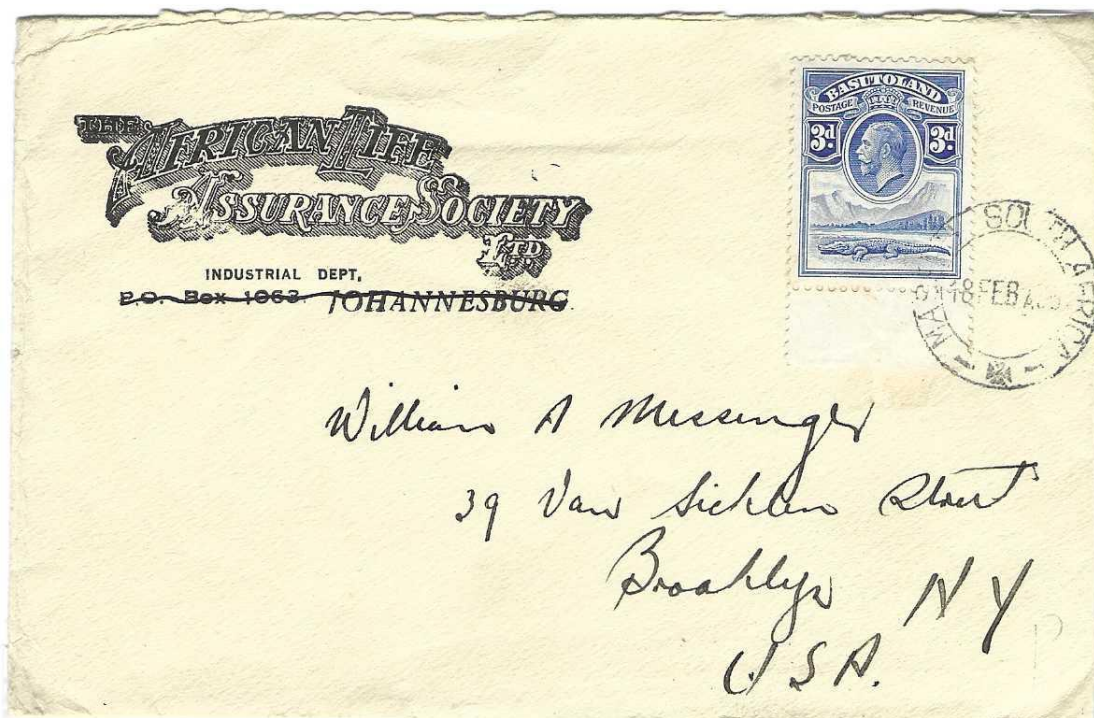 THE AFRICAN LIFE
ASSURANCE SOCIETY
LTD.
INDUSTRIAL DEPT,
P.O. Box 1063. JOHANNESBURG.
BASUTOLAND
POSTAGE REVENUE
3d 3d
SOUTH AFRICA
18 FEB
William A Messenger
39 Van Sicklen Street
Brooklyn NY
USA.